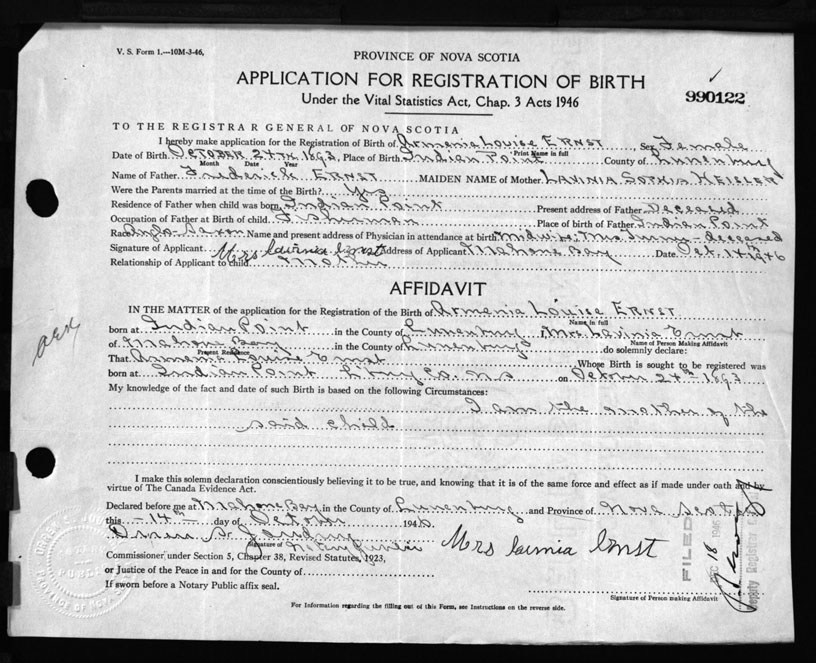 V. S. Form 1.—10M-3-46.
PROVINCE OF NOVA SCOTIA
APPLICATION FOR REGISTRATION OF BIRTH
Under the Vital Statistics Act, Chap. 3 Acts 1946
990122
TO THE REGISTRAR GENERAL OF NOVA SCOTIA
I hereby make application for the Registration of Birth of Armenia Louise ERNST Sex Female
Print Name in full
Date of Birth OCTOBER 24TH 1893, Place of Birth Indian Point County of Lunenburg
Month Date Year
Name of Father Frederick ERNST MAIDEN NAME of Mother LAVINIA SOPHIA HEISLER
Were the Parents married at the time of the Birth? Yes
Residence of Father when child was born Indian Point Present address of Father Deceased
Occupation of Father at Birth of child Fisherman Place of birth of Father Indian Point
Race Anglo-Saxon Name and present address of Physician in attendance at birth Midwife, Mrs - deceased
Signature of Applicant Mrs Lavinia Ernst Address of Applicant Mahone Bay Date Oct. 14th 1946
Relationship of Applicant to child Mother
AFFIDAVIT
IN THE MATTER of the application for the Registration of the Birth of Armenia Louise ERNST
Name in full
born at Indian Point in the County of Lunenburg, I, Mrs. Lavinia Ernst
Name of Person Making Affidavit
of Mahone Bay in the County of Lunenburg do solemnly declare:
Present Residence
That Armenia Louise Ernst Whose Birth is sought to be registered was
born at Indian Point L'burg Co. N S on October 24th 1893
My knowledge of the fact and date of such Birth is based on the following Circumstances:
I am the mother of the
said child
I make this solemn declaration conscientiously believing it to be true, and knowing that it is of the same force and effect as if made under oath and by
virtue of The Canada Evidence Act.
Declared before me at Mahone Bay in the County of Lunenburg and Province of Nova Scotia
this -14th- day of October 1946
Signature of Notary Public
Mrs Lavinia Ernst
Commissioner under Section 5, Chapter 38, Revised Statutes, 1923,
or Justice of the Peace in and for the County of
If sworn before a Notary Public affix seal.
Signature of Person making Affidavit
FILED
DEC 18 1946
Deputy Registrar
For Information regarding the filling out of this Form, see Instructions on the reverse side.